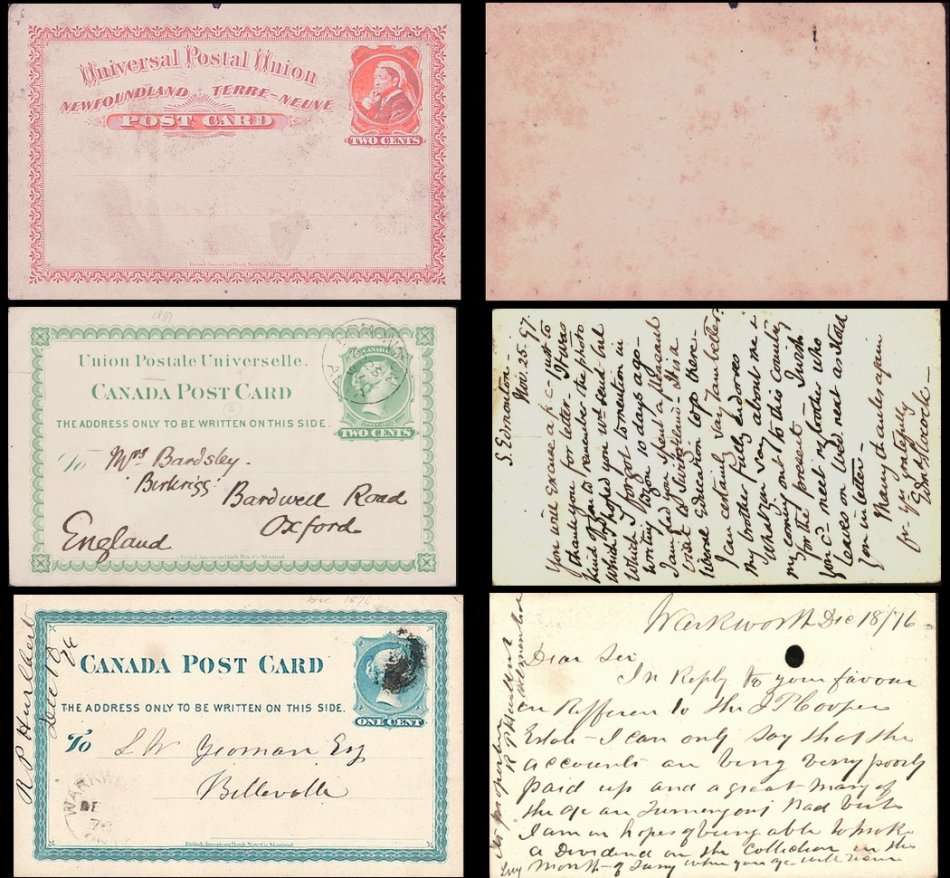 Universal Postal Union
NEWFOUNDLAND TERRE-NEUVE
POST CARD
TWO CENTS
British American Bank Note Co. Montreal
1897
Union Postale Universelle.
CANADA POST CARD
THE ADDRESS ONLY TO BE WRITTEN ON THIS SIDE.
CANADA POSTAGE
TWO CENTS
To Mrs Bardsley.
Birkrigg
Bardwell Road
Oxford
England
British American Bank Note Co. Montreal
S. Edmonton
Nov. 25. 97.
You will excuse a p.c. just to
thank you for letter. It was
kind of you to remember the photo
which I hoped you wd send but
which I forgot to mention in
writing you 10 days ago
I am glad you spent a pleasant
visit at Switzerland. It is a
liberal Education to be there.
I can certainly say I am better.
my brother fully endorses
what you say about me
my coming out to this country
for the present. I wish
you cd meet my brother who
leaves on Wed next as stated
in letter
Many thanks again
yrs gratefully
Dec 1876
R P Hurlbert
Dec 18 76
CANADA POST CARD
THE ADDRESS ONLY TO BE WRITTEN ON THIS SIDE.
ONE CENT
To S. W Yeoman Esq
Belleville
British American Bank Note Co. Montreal
Warkworth Dec 18/76
Dear Sir
In Reply to your favour
in Refference to the J P Cooper
Estate - I can only say that the
accounts are being very poorly
paid up and a great many of
the a/c are turning out bad but
I am in hopes of being able to make
a Dividend on the collection in the
Month of Jany when you
R P Hurlbert